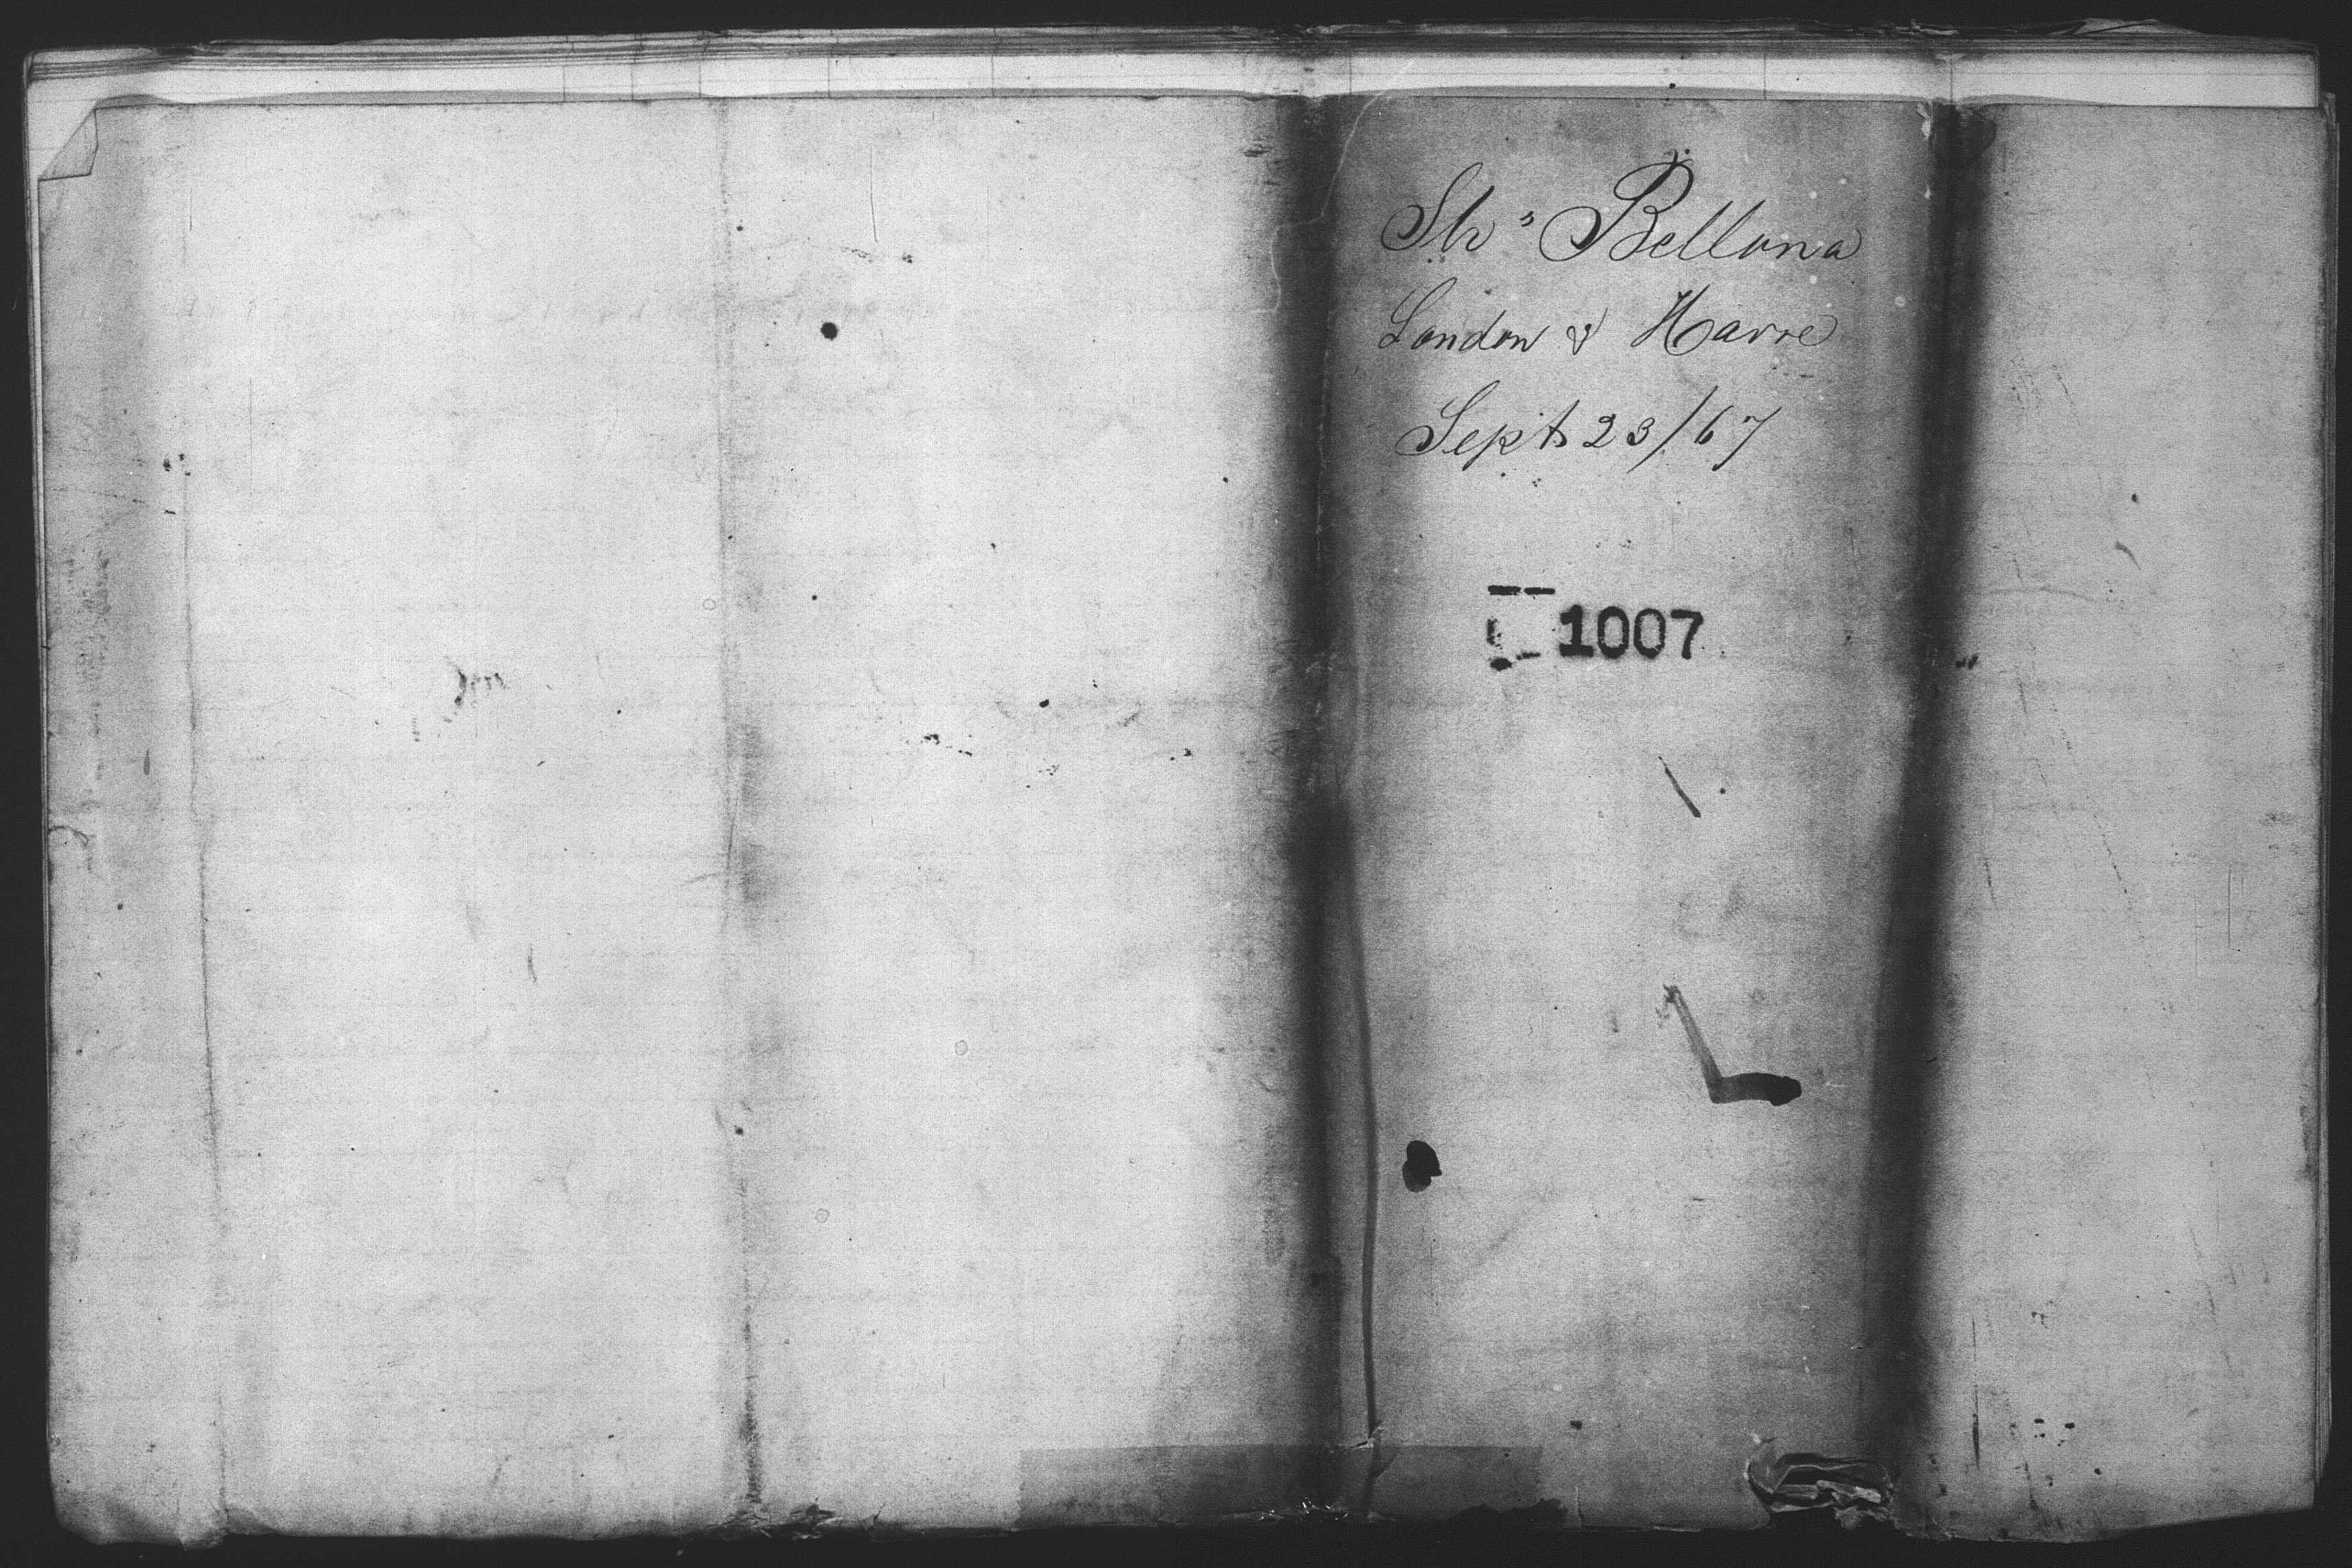 Str Bellona
London & Havre
Sept 23/67
1007